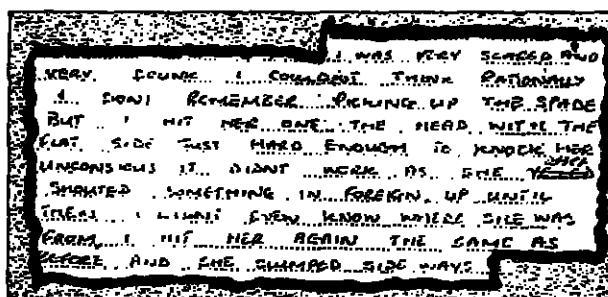 I WAS VERY SCARED AND
VERY DRUNK I COULDENT THINK RATIONALLY
I DONT REMEMBER PICKING UP THE SPADE
BUT I HIT HER ONE THE HEAD WITH THE
FLAT SIDE JUST HARD ENOUGH TO KNOCK HER
UNCONSIUS IT DIDNT WORK AS SHE THEN
SHOUTED SOMETHING IN FOREIGN UP UNTIL
THEN I DIDNT EVEN KNOW WHERE SHE WAS
FROM I HIT HER AGAIN THE SAME AS
BEFORE AND SHE SLUMPED SIDE WAYS